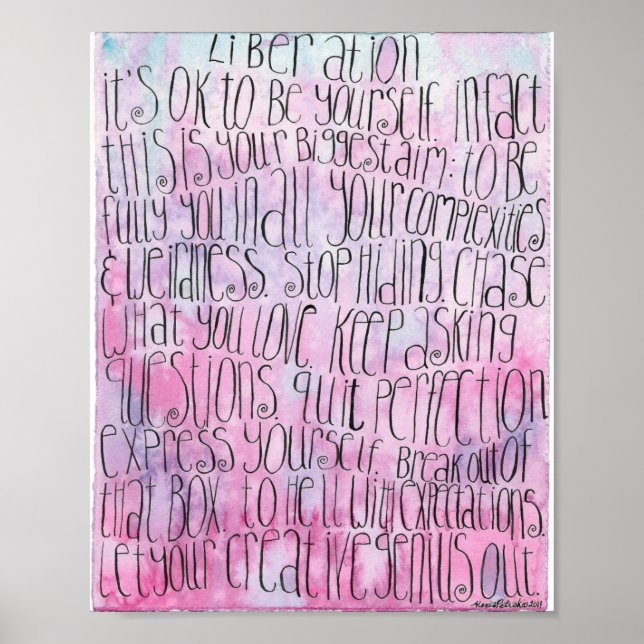 LiBeration
it's OK to Be yourself. infact
this is your Biggest aim: to Be
fully you in all your complexities
& weirdness. Stop Hiding. Chase
what you LOVE. Keep asking
questions. quit perfection
express yourself. Break out of
that BOX. to Hell with expectations.
Let your creative genius out.
Alexis Petrakos 2011